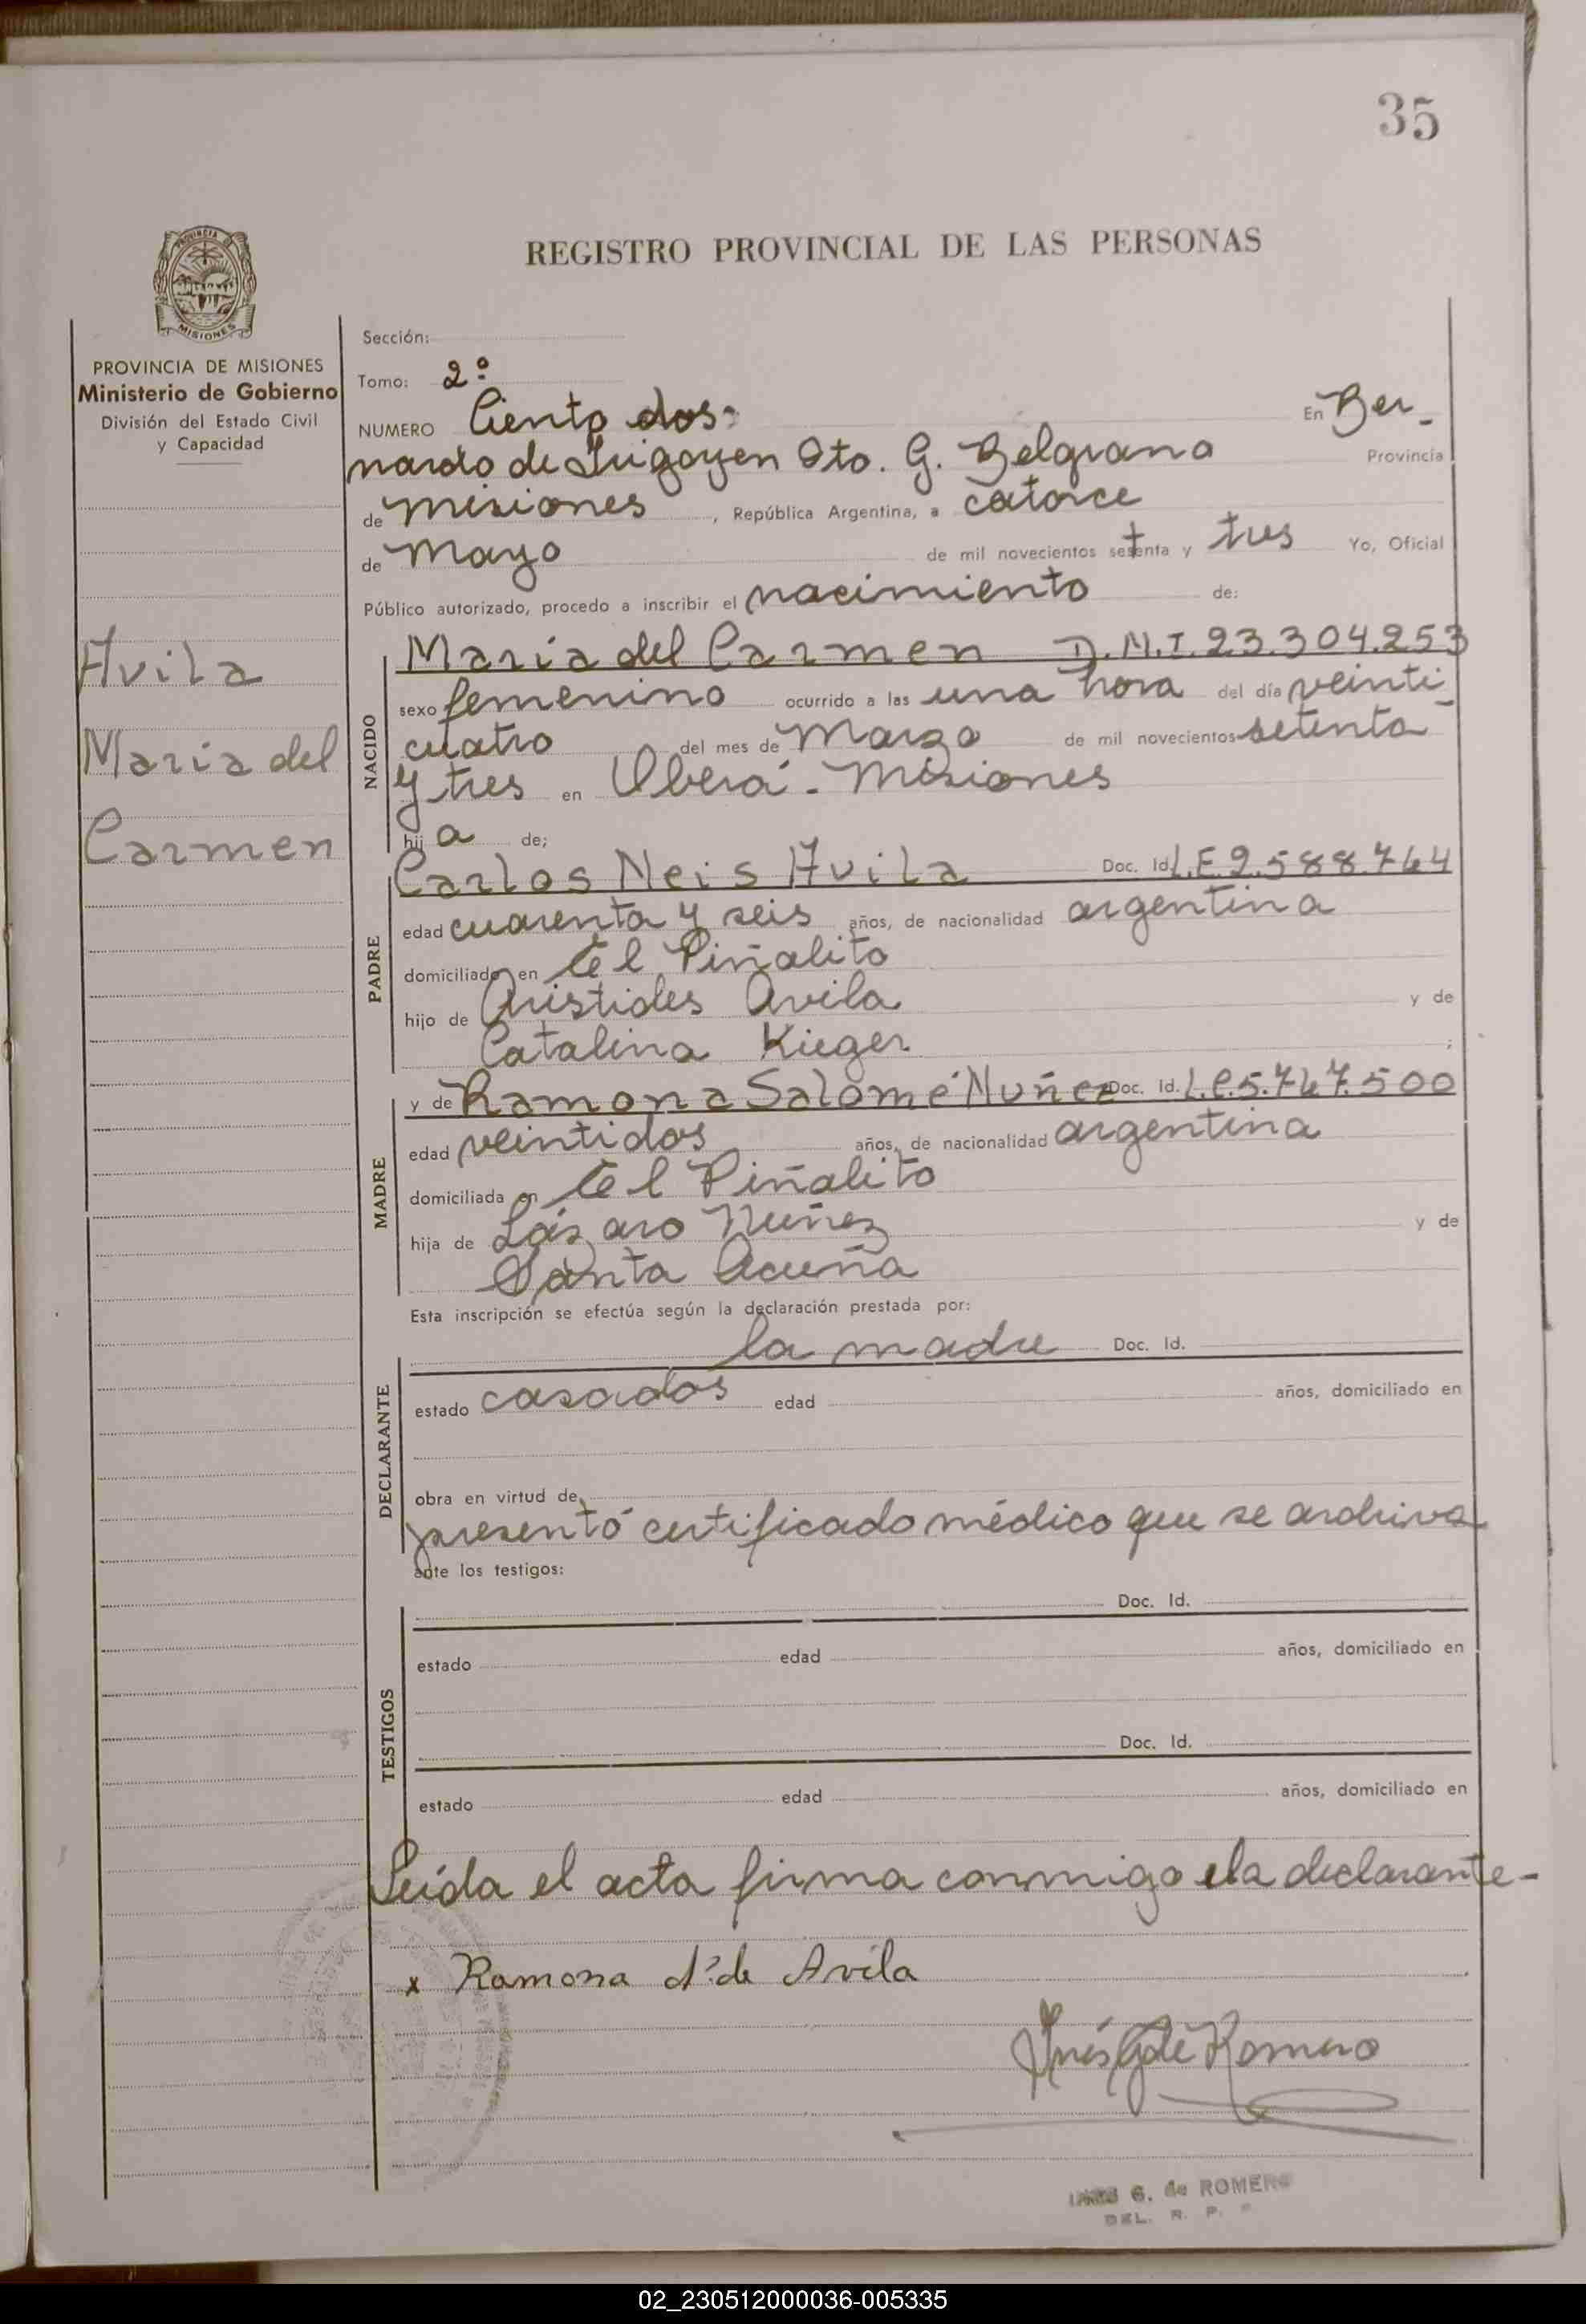 35
REGISTRO PROVINCIAL DE LAS PERSONAS
PROVINCIA
MISIONES
PROVINCIA DE MISIONES
Ministerio de Gobierno
División del Estado Civil
y Capacidad
Avila
Maria del
Carmen
Sección:
Tomo: 2º
NUMERO Ciento dos- En Ber-
nardo de Irigoyen Dto. G. Belgrano Provincia
de Misiones, República Argentina, a catorce
de Mayo de mil novecientos setenta y tres Yo, Oficial
Público autorizado, procedo a inscribir el nacimiento de:
NACIDO
Maria del Carmen D.N.I. 23.304.253
sexo femenino ocurrido a las una hora del día veinti-
cuatro del mes de Marzo de mil novecientos setenta
y tres en Oberá - Misiones
hij a de;
PADRE
Carlos Neis Avila Doc. Id. L.E 9.588.764
edad cuarenta y seis años, de nacionalidad argentina
domiciliado en El Piñalito
hijo de Aristides Avila y de
Catalina Kieger ;
MADRE
y de Ramona Salomé Nuñez Doc. Id. L.C 5.747.500
edad veintidos años, de nacionalidad argentina
domiciliada en El Piñalito
hija de Lázaro Nuñez y de
Santa Acuña
Esta inscripción se efectúa según la declaración prestada por:
DECLARANTE
la madre Doc. Id.
estado casados edad años, domiciliado en
obra en virtud de
presentó certificado médico que se archiva
ante los testigos:
TESTIGOS
Doc. Id.
estado edad años, domiciliado en
Doc. Id.
estado edad años, domiciliado en
Leída el acta firma conmigo la declarante-
x Ramona de Avila
Inés G de Romero
INES G. de ROMERO
DEL. R. P.
02_230512000036-005335